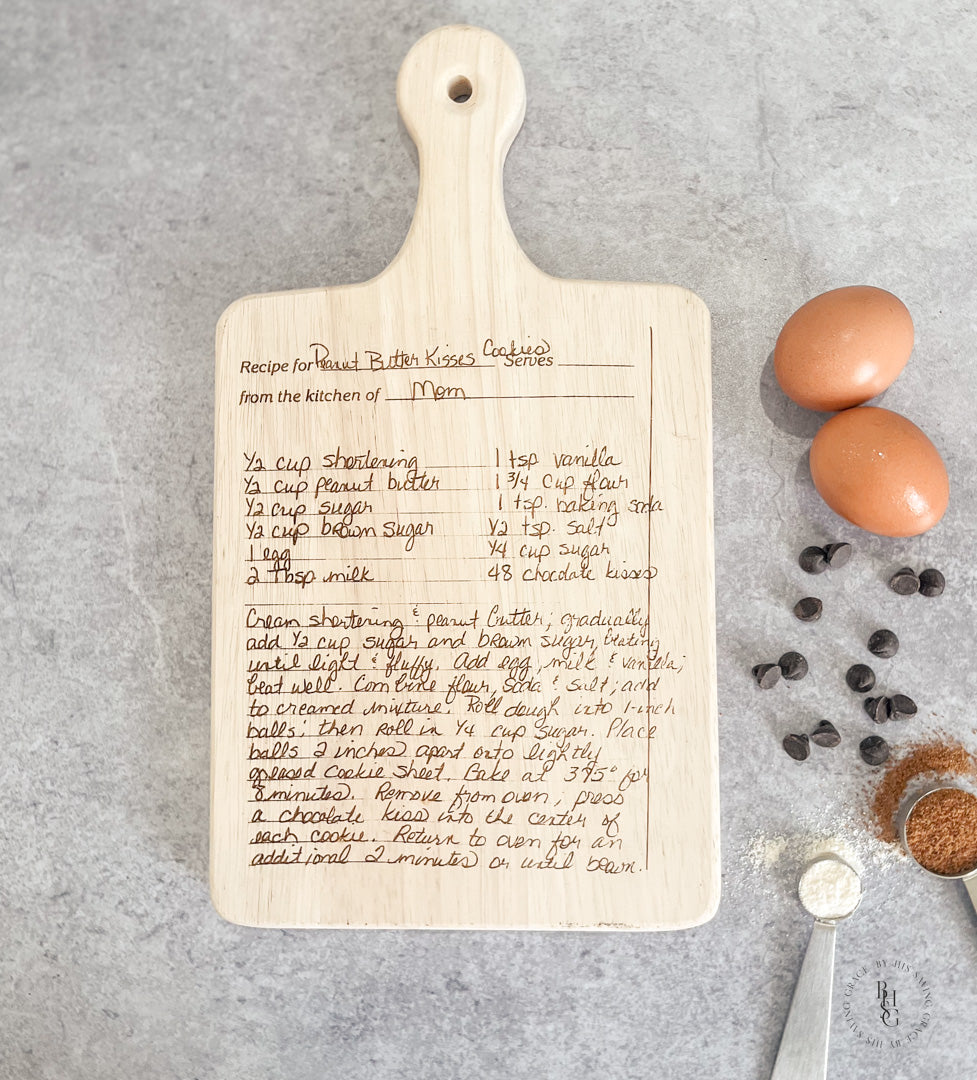 Recipe for Peanut Butter Kisses Cookies Serves
from the kitchen of Mom
1/2 cup shortening 1 tsp vanilla
1/2 cup peanut butter 1 3/4 cup flour
1/2 cup sugar 1 tsp. baking soda
1/2 cup brown sugar 1/2 tsp. salt
1 egg 1/4 cup sugar
2 Tbsp milk 48 chocolate kisses
Cream shortening & peanut butter; gradually
add 1/2 cup sugar and brown sugar, beating
until light & fluffy. Add egg, milk & vanilla;
beat well. Combine flour, soda & salt; add
to creamed mixture. Roll dough into 1-inch
balls; then roll in 1/4 cup sugar. Place
balls 2 inches apart onto lightly
greased cookie sheet. Bake at 375° for
8 minutes. Remove from oven; press
a chocolate kiss into the center of
each cookie. Return to oven for an
additional 2 minutes or until brown.
BY HIS SAVING GRACE BY HIS SAVING GRACE
BHSG